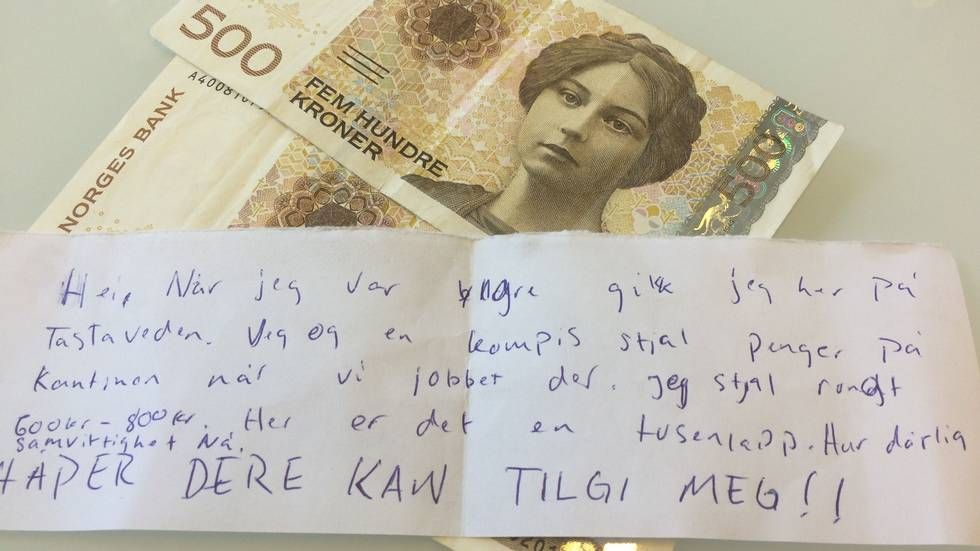 500
FEM HUNDRE
KRONER
500
A4008101
NORGES BANK
Hei, Når jeg var yngre gikk jeg her på
Tastaveden. Jeg og en kompis stjal penger på
Kantinen når vi jobbet der. jeg stjal rundt
600kr-800kr. Her er det en tusenlapp. Hur dårlig
samvittighet Nå.
HÅPER DERE KAN TILGI MEG!!